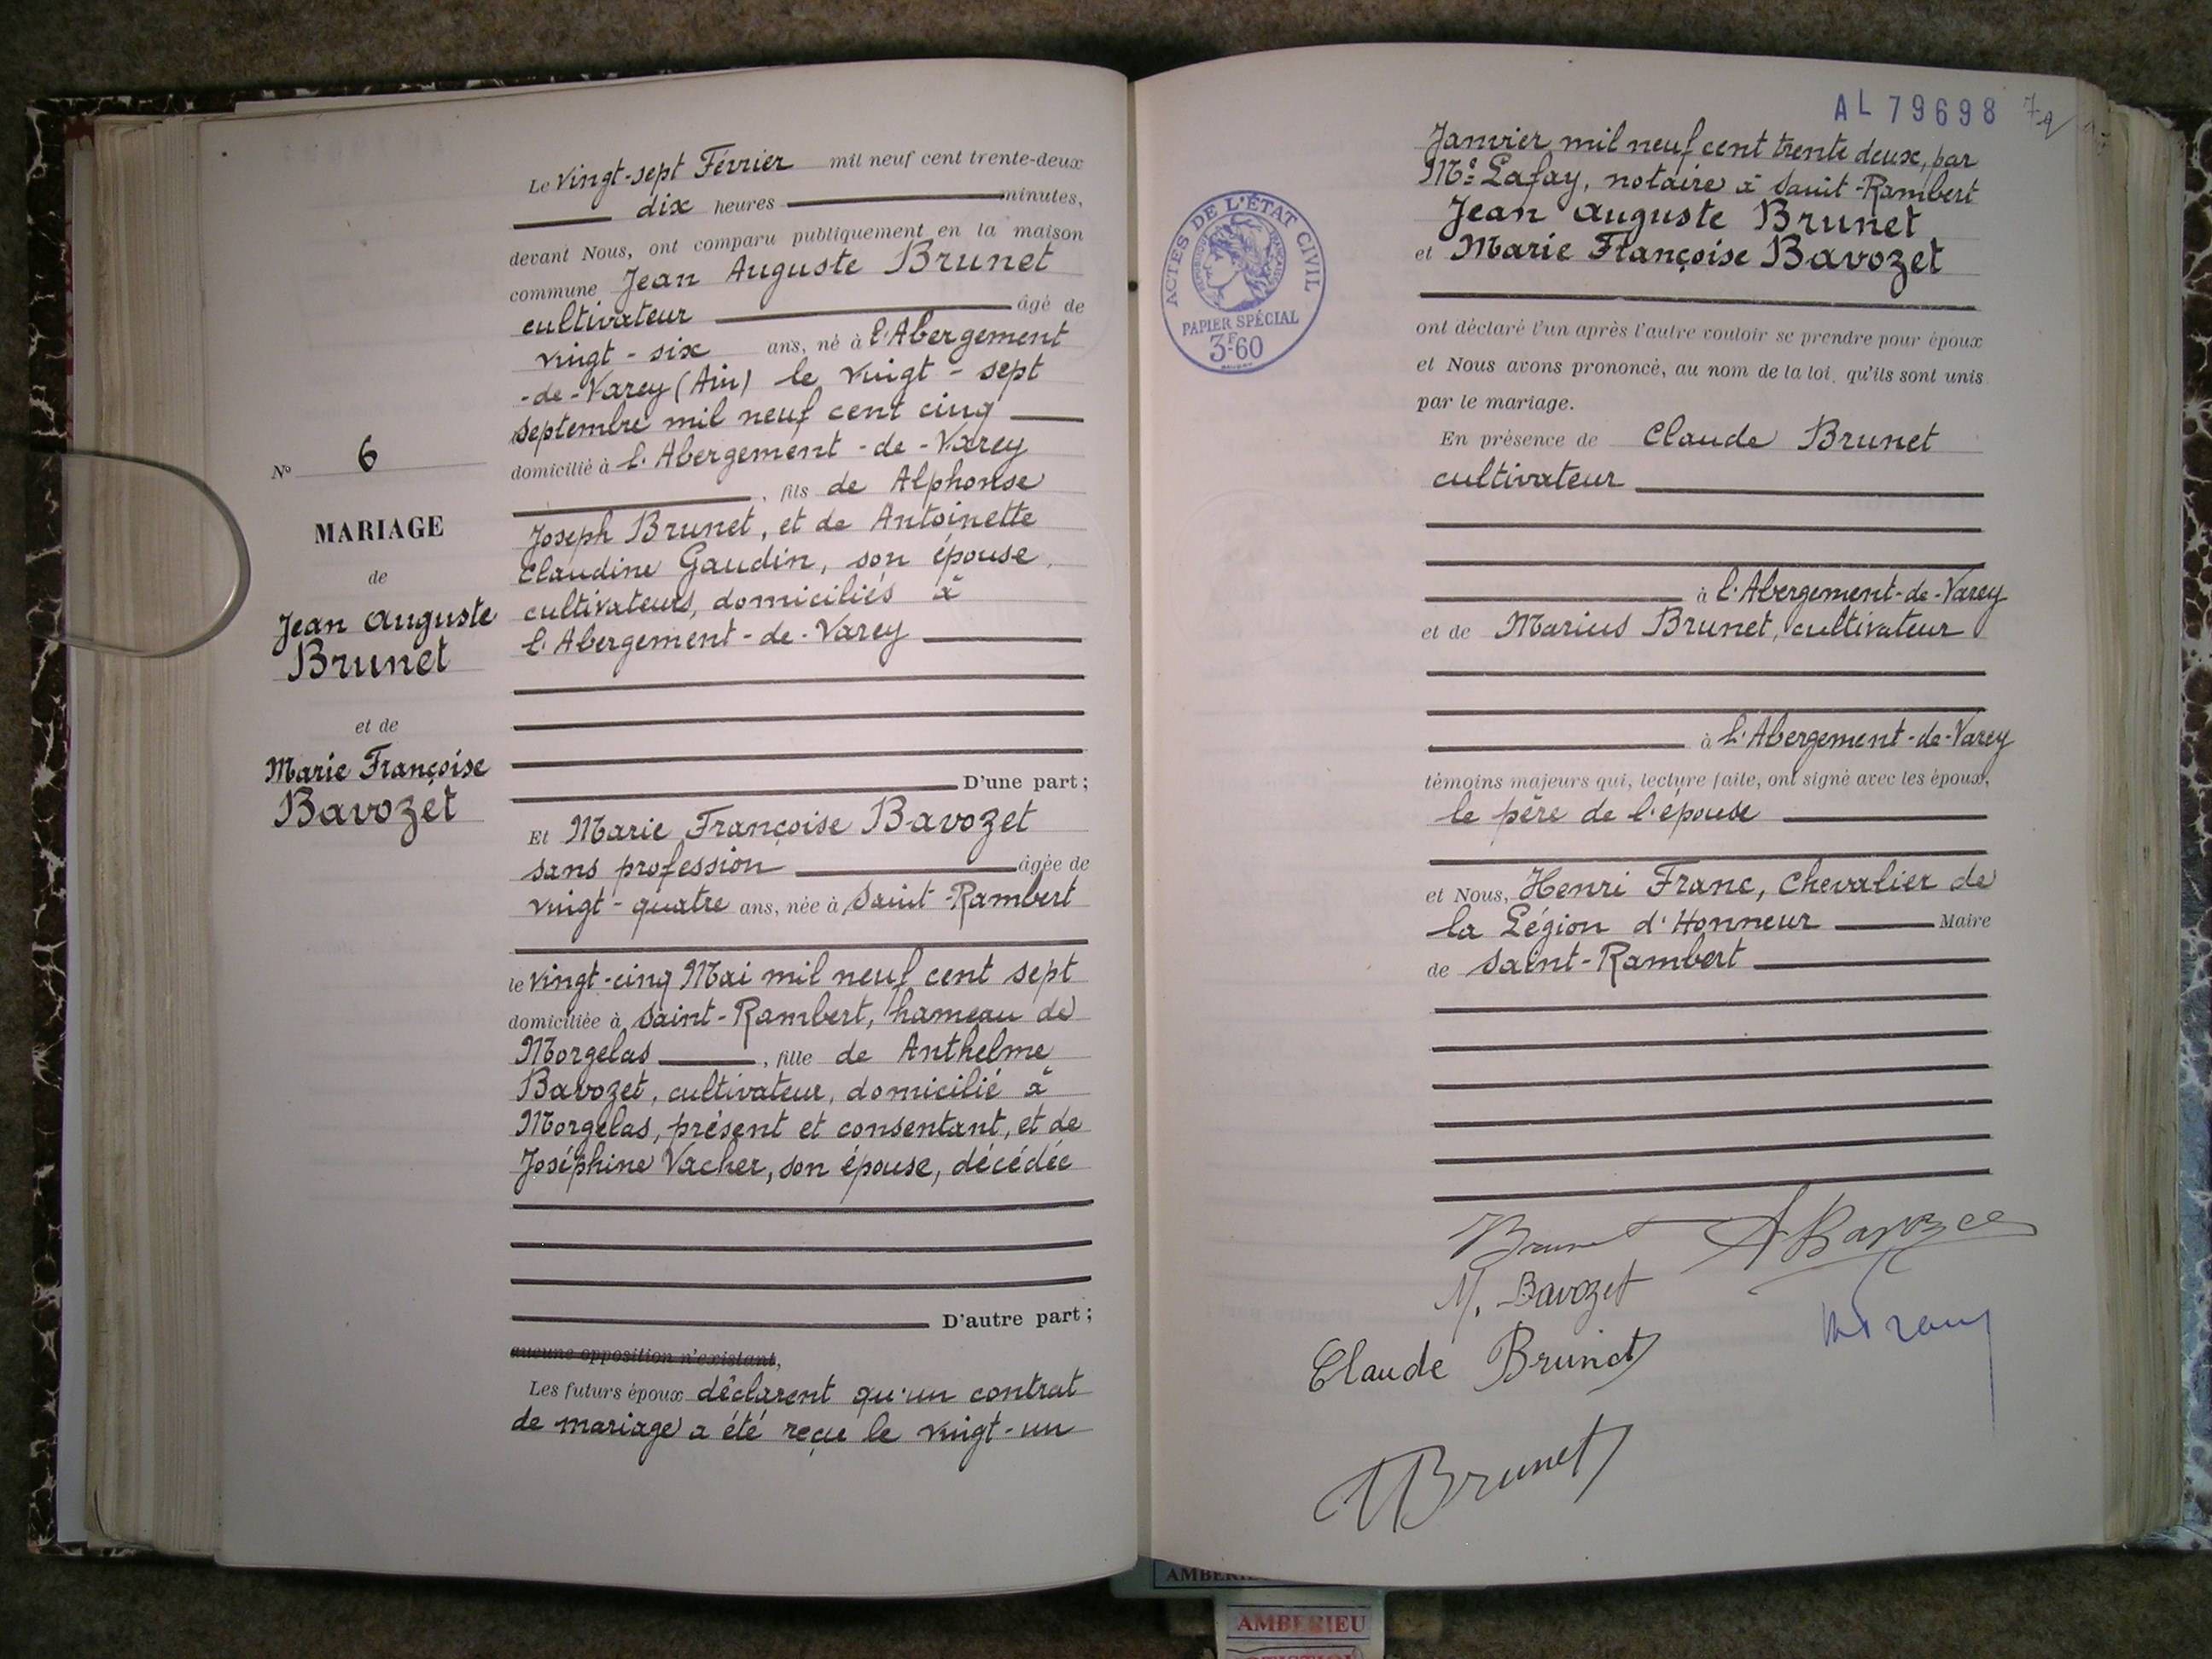 Le vingt-sept Février mil neuf cent trente-deux
dix heures minutes,
devant Nous, ont comparu publiquement en la maison
commune Jean Auguste Brunet
cultivateur âgé de
vingt-six ans, né à l'Abergement
-de-Varey (Ain) le vingt-sept
septembre mil neuf cent cinq
domicilié à l'Abergement-de-Varey
, fils de Alphonse
Joseph Brunet, et de Antoinette
Claudine Gaudin, son épouse,
cultivateurs, domiciliés à
l'Abergement-de-Varey
D'une part;
N° 6
MARIAGE
de
Jean Auguste
Brunet
et de
Marie Françoise
Bavozet
Et Marie Françoise Bavozet
sans profession âgée de
vingt-quatre ans, née à Saint-Rambert
le vingt-cinq Mai mil neuf cent sept
domiciliée à Saint-Rambert, hameau de
Morgelas, fille de Anthelme
Bavozet, cultivateur, domicilié à
Morgelas, présent et consentant, et de
Joséphine Vacher, son épouse, décédée
D'autre part;
aucune opposition n'existant,
Les futurs époux déclarent qu'un contrat
de mariage a été reçu le vingt-un
AL 79698
Janvier mil neuf cent trente deux, par
Me Lafay, notaire à Saint-Rambert
Jean Auguste Brunet
et Marie Françoise Bavozet
ACTES DE L'ÉTAT CIVIL
PAPIER SPÉCIAL
3F60
ont déclaré l'un après l'autre vouloir se prendre pour époux
et Nous avons prononcé, au nom de la loi, qu'ils sont unis
par le mariage.
En présence de Claude Brunet
cultivateur
à l'Abergement-de-Varey
et de Marius Brunet, cultivateur
à l'Abergement-de-Varey
témoins majeurs qui, lecture faite, ont signé avec les époux,
le père de l'épouse
et Nous, Henri Franc, Chevalier de
la Légion d'Honneur Maire
de Saint-Rambert
Brunet
M. Bavozet
Claude Brunet
Brunet
AMBERIEU